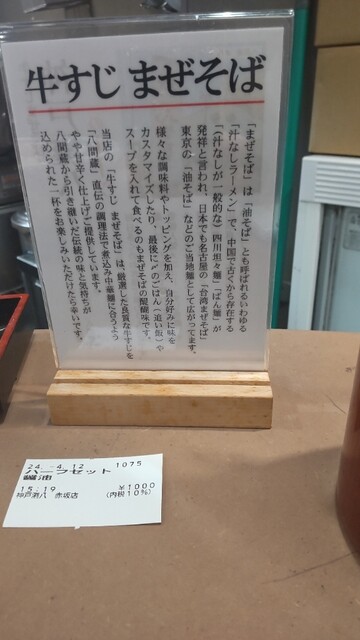 牛すじ まぜそば
「まぜそば」は「油そば」とも呼ばれるいわゆる
「汁なしラーメン」で、中国で古くから存在する
「(汁なしが一般的な)四川坦々麺」「ばん麺」が
発祥と言われ、日本でも名古屋の「台湾まぜそば」
東京の「油そば」などのご当地麺として広がってます。
様々な調味料やトッピングを加え、自分好みに味を
カスタマイズしたり、最後に〆のごはん(追い飯)や
スープを入れて食べるのもまぜそばの醍醐味です。
当店の「牛すじ まぜそば」は、厳選した良質な牛すじを
「八間蔵」直伝の調理法で煮込み中華麺に合うよう
やや甘辛く仕上げご提供しています。
八間蔵から引き継いだ伝統の味と気持ちが
込められた一杯をお楽しみいただけたら幸いです。
24. -4.12 1075
ハーフセット
醤油
15:19 ¥1000
神戸酒八 赤坂店 (内税10%)